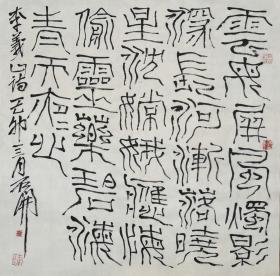 雲母屏風燭影
深長河漸落曉
星沈嫦娥應悔
偷靈藥碧海
青天夜〻心
李義山詩丁卯三月石開